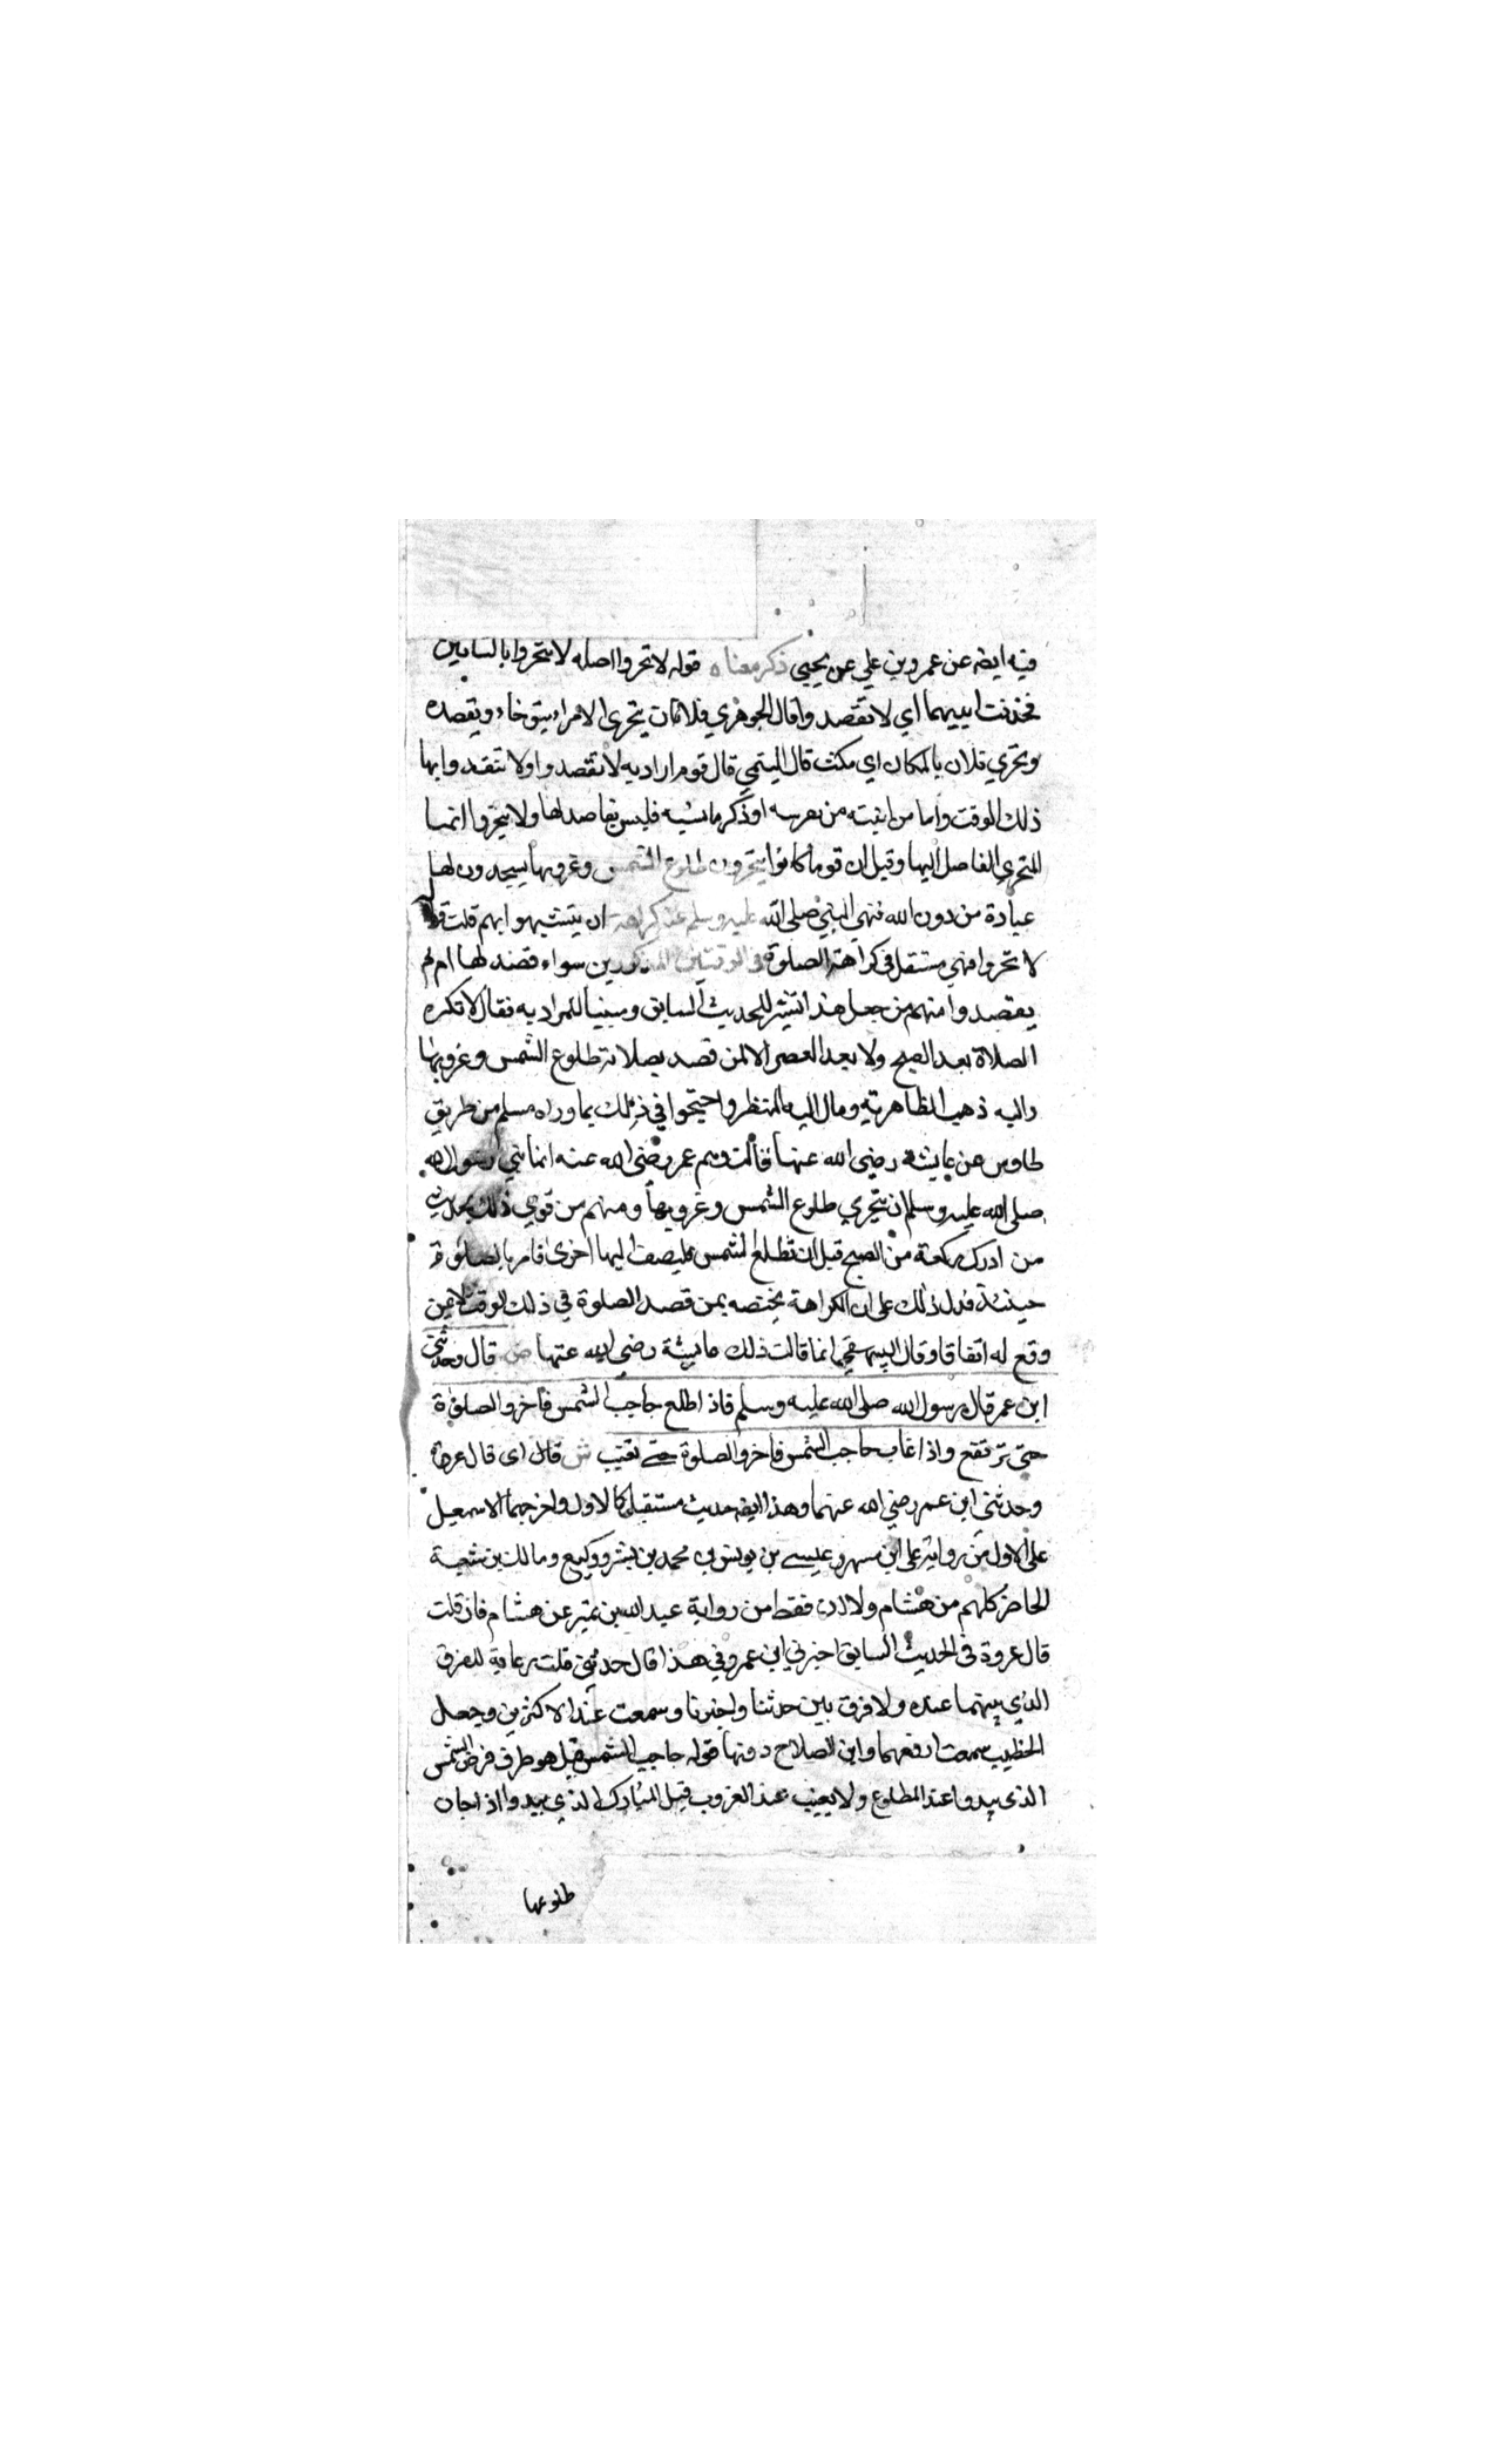 فيه ايضه عن عمرو بن علي عن يحيى ذكر معناه قوله لا تحروا اصله لا تتحروا بالتايين
فحذفت احديهما اي لا تقصد وا قال الجوهري فلان يتحرى الامر اي يتوخاه ويقصده
وتحري فلان بالمكان اي مكث قال التيمي قال قوم اراد به لا تقصدوا ولا تبتدوا بها
ذلك الوقت واما من انتبه من نومه او ذكر ما نسيه فليس بقاصد لها ولا يتحروا انما
المتحري القاصد اليها وقيل ان قوما كانوا يتحرون طلوع الشمس وغروبها يسجدون لها
عبادة من دون الله فنهى النبي صلى الله عليه وسلم عنه كراهة ان يتشبهوا بهم قلت قوله
لا تحروا نهي مستقل في كراهة الصلوة في الوقتين المذكورين سواء قصد لها ام لم
يقصد ومنهم من جعل هذا تفسير للحديث السابق ومبينا للمراد به فقال لا تكره
الصلاة بعد الصبح ولا بعد العصر الا لمن قصد بصلاته طلوع الشمس وغروبها
واليه ذهب الظاهرية ومال اليه المنظر واحتجوا في ذلك بما وراه مسلم من طريق
طاوس عن عايشة رضي الله عنها قالت وهم عمر رضي الله عنه انما نهي رسول الله
صلى الله عليه وسلم ان يتحري طلوع الشمس وغروبها ومنهم من قوي ذلك بحديث
من ادرك ركعة من الصبح قبل ان تطلع الشمس فليضف اليها اخرى فامر بالصلوة
حينئذ فدل ذلك على ان الكراهة يختصه بمن قصد الصلوة في ذلك الوقت لا من
وقع له اتفاقا وقال البيهقي انما قالت ذلك عايشة رضي الله عنها ص قال وحدثني
ابن عمر قال رسول الله صلى الله عليه وسلم فاذا طلع حاجب الشمس فاخروا الصلوة
حتى ترتقع واذا غاب حاجب الشمس فاخروا الصلوة حتى تغيب ش قال اى قال عروة
وحدثني ابن عمر رضي الله عنهما وهذا ايضه حديث مستقل كالاول واخرجهما الاسمعيل
على الاول من رواية على ابن مسهر وعيسى بن يونس ومحمد بن بشر ووكيع ومالك بن شعبة
الحاضر كلهم من هشام ولا لان فقط من رواية عبد الله بن نمير عن هشام فان قلت
قال عروة في الحديث السابق اخبرني ابن عمر وفي هذا قال حدثني قلت رعاية للفرق
الذي بينهما عنده ولا فرق بين حدثنا واخبرنا وسمعت عند الاكثرين وجعل
الخطيب سمعت ارفعهما وابن الصلاح دونها قوله حاجب الشمس قيل هو طرف قرص الشمس
الذى يبدوا عند الطلوع ولا يغيب عند الغروب قيل النيازك الذي يبدوا اذا حان
طلوعها